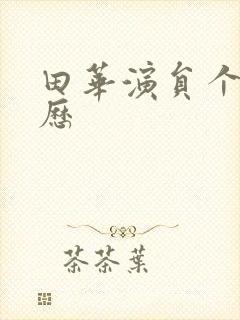 田華演員个
歷
茶茶葉